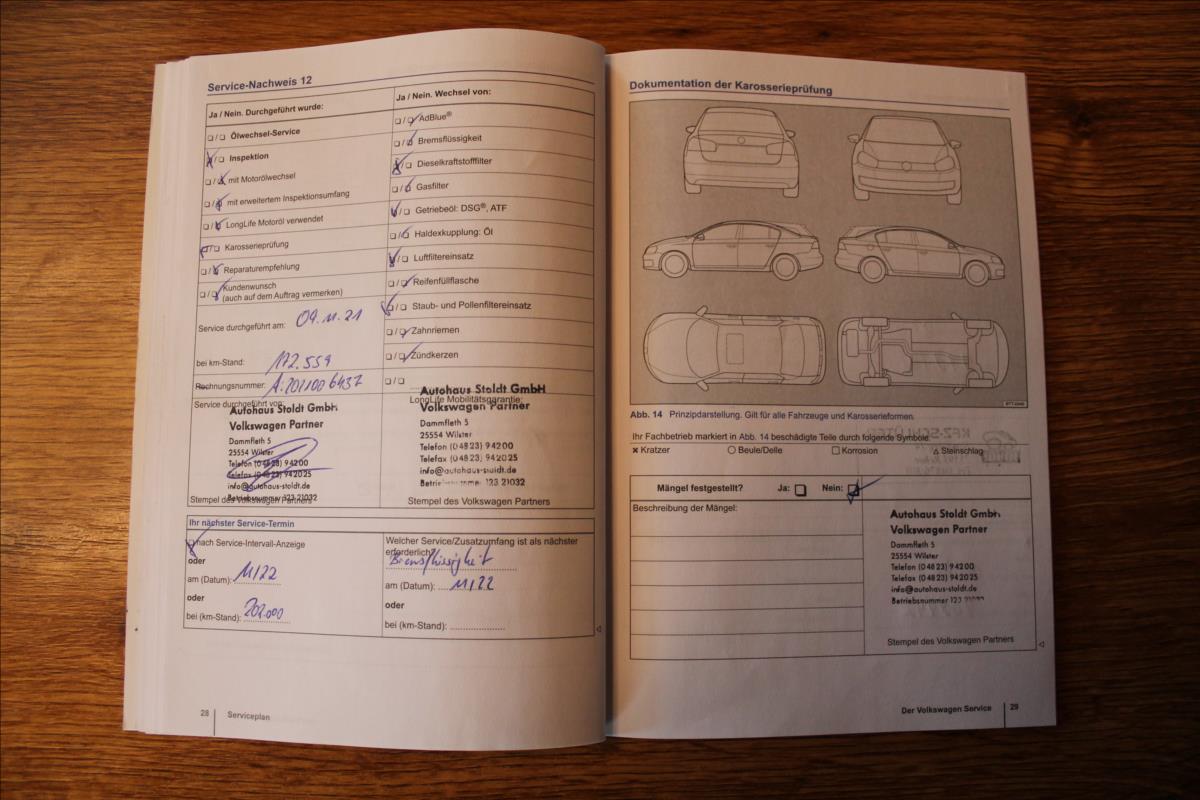 Service-Nachweis 12
Ja / Nein. Durchgeführt wurde:
❏ / ❏ Ölwechsel-Service
❏ / ❏ Inspektion
❏ / ❏ mit Motorölwechsel
❏ / ❏ mit erweitertem Inspektionsumfang
❏ / ❏ LongLife Motoröl verwendet
❏ / ❏ Karosserieprüfung
❏ / ❏ Reparaturempfehlung
❏ / ❏ Kundenwunsch
(auch auf dem Auftrag vermerken)
Service durchgeführt am: 09.11.21
bei km-Stand: 172.559
Rechnungsnummer:
Service durchgeführt von:
Autohaus Stoldt GmbH
Volkswagen Partner
Dammfleth 5
25554 Wilster
Telefon (04823) 94200
Telefax (04823) 942025
info@autohaus-stoldt.de
Betriebsnummer 123 21032
Stempel des Volkswagen Partners
Ja / Nein. Wechsel von:
❏ / ❏ AdBlue®
❏ / ❏ Bremsflüssigkeit
❏ / ❏ Dieselkraftstofffilter
❏ / ❏ Gasfilter
❏ / ❏ Getriebeöl: DSG®, ATF
❏ / ❏ Haldexkupplung: Öl
❏ / ❏ Luftfiltereinsatz
❏ / ❏ Reifenfüllflasche
❏ / ❏ Staub- und Pollenfiltereinsatz
❏ / ❏ Zahnriemen
❏ / ❏ Zündkerzen
❏ / ❏
LongLife Mobilitätsgarantie:
Autohaus Stoldt GmbH
Volkswagen Partner
Dammfleth 5
25554 Wilster
Telefon (04823) 94200
Telefax (04823) 942025
info@autohaus-stoldt.de
Betriebsnummer 123 21032
Stempel des Volkswagen Partners
Ihr nächster Service-Termin
❏ nach Service-Intervall-Anzeige
oder
am (Datum): 11/22
oder
bei (km-Stand): 202.000
Welcher Service/Zusatzumfang ist als nächster
erforderlich?
Bremsflüssigkeit
am (Datum): 11/22
oder
bei (km-Stand):
28 Serviceplan
Dokumentation der Karosserieprüfung
Abb. 14 Prinzipdarstellung. Gilt für alle Fahrzeuge und Karosserieformen.
Ihr Fachbetrieb markiert in Abb. 14 beschädigte Teile durch folgende Symbole:
× Kratzer ○ Beule/Delle □ Korrosion △ Steinschlag
Mängel festgestellt? Ja: ❏ Nein: ❏
Beschreibung der Mängel:
Autohaus Stoldt GmbH
Volkswagen Partner
Dammfleth 5
25554 Wilster
Telefon (04823) 94200
Telefax (04823) 942025
info@autohaus-stoldt.de
Betriebsnummer 123 21032
Stempel des Volkswagen Partners
Der Volkswagen Service 29